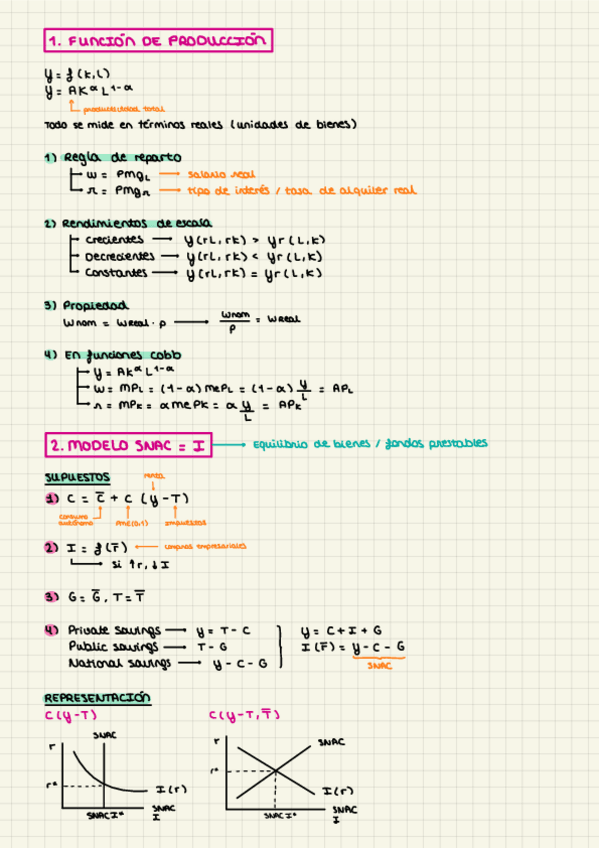 1. FUNCIÓN DE PRODUCCIÓN
y = f (K, L)
y = AK^α L^1-α
productividad total
Todo se mide en términos reales (unidades de bienes)
1) Regla de reparto
w = PMg_L → salario real
r = PMg_K → tipo de interés / tasa de alquiler real
2) Rendimientos de escala
Crecientes → y(rL, rK) > yr (L, K)
Decrecientes → y(rL, rK) < yr (L, K)
Constantes → y(rL, rK) = yr (L, K)
3) Propiedad
Wnom = Wreal · P → Wnom / P = Wreal
4) En funciones cobb
y = AK^α L^1-α
w = MP_L = (1-α) meP_L = (1-α) y/L = AP_L
r = MP_K = α mePK = α y/L = AP_K
2. MODELO SNAC = I → Equilibrio de bienes / fondos prestables
SUPUESTOS
renta
1) C = C̅ + c (y - T)
consumo autónomo
PMC(0,1)
impuestos
2) I = f(r̅) ← compras empresariales
si ↑r, ↓I
3) G = G̅, T = T̅
4) Private savings → y = T - C
Public savings → T - G
National savings → y - C - G
y = C + I + G
I(r̅) = y - C - G
SNAC
REPRESENTACIÓN
C(y-T)
C(y-T, r̅)
r
SNAC
r*
I(r)
SNAC I*
SNAC
I
r
SNAC
r*
I(r)
SNAC I*
SNAC
I